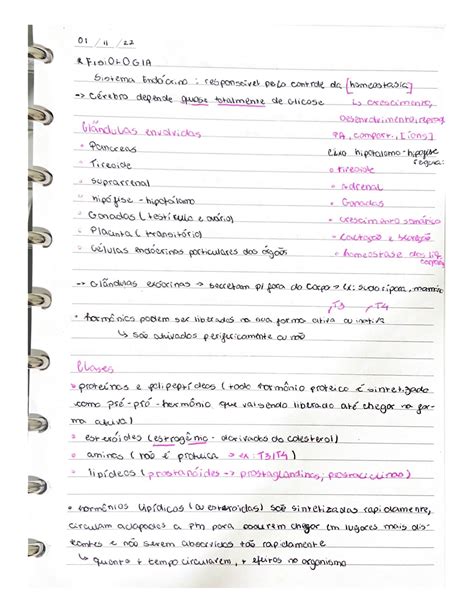 01 / 11 / 22
& FISIOLOGIA
Sistema Endócrino : responsável pelo controle da [homeostasia]
-> Cérebro depende quase totalmente de glicose
↳ crescimento,
desenvolvimento, reprod.
PA, comport., [íons]
Glândulas envolvidas
Eixo hipotálamo-hipófise
regula:
◦ Pâncreas
◦ Tireoide
◦ Tireoide
◦ suprarrenal
◦ Adrenal
◦ hipófise - hipotálamo
◦ Gonadas
◦ Gonadas (testículo e ovário)
◦ crescimento somático
◦ Placenta (transitório)
◦ Lactação e secreção
◦ Células endócrinas particulares dos órgãos
◦ homeostase dos líq.
corporais
-> Glândulas exócrinas -> secretam p/ fora do corpo -> Ex: sudorípara, mamária
T3 T4
• hormônios podem ser liberados na sua forma ativa ou inativa
↳ são ativados perifericamente ou não
Classes
• proteínas e polipeptídeos (todo hormônio proteico é sintetizado
como pré-pró-hormônio que vai sendo liberado até chegar na for-
ma ativa)
• esteroides (estrogêmo - derivados do colesterol)
• aminas (não é proteína -> ex: T3/T4)
• lipídeos (prostanóides -> prostaglandinas; prostaciclinas)
• hormônios lipídicos (ou esteroidas) são sintetizados rapidamente,
circulam acoplados a Ptn para poderem chegar em lugares mais dis-
tantes e não serem absorvidos tão rapidamente
↳ quanto + tempo circularem, + efeitos no organismo